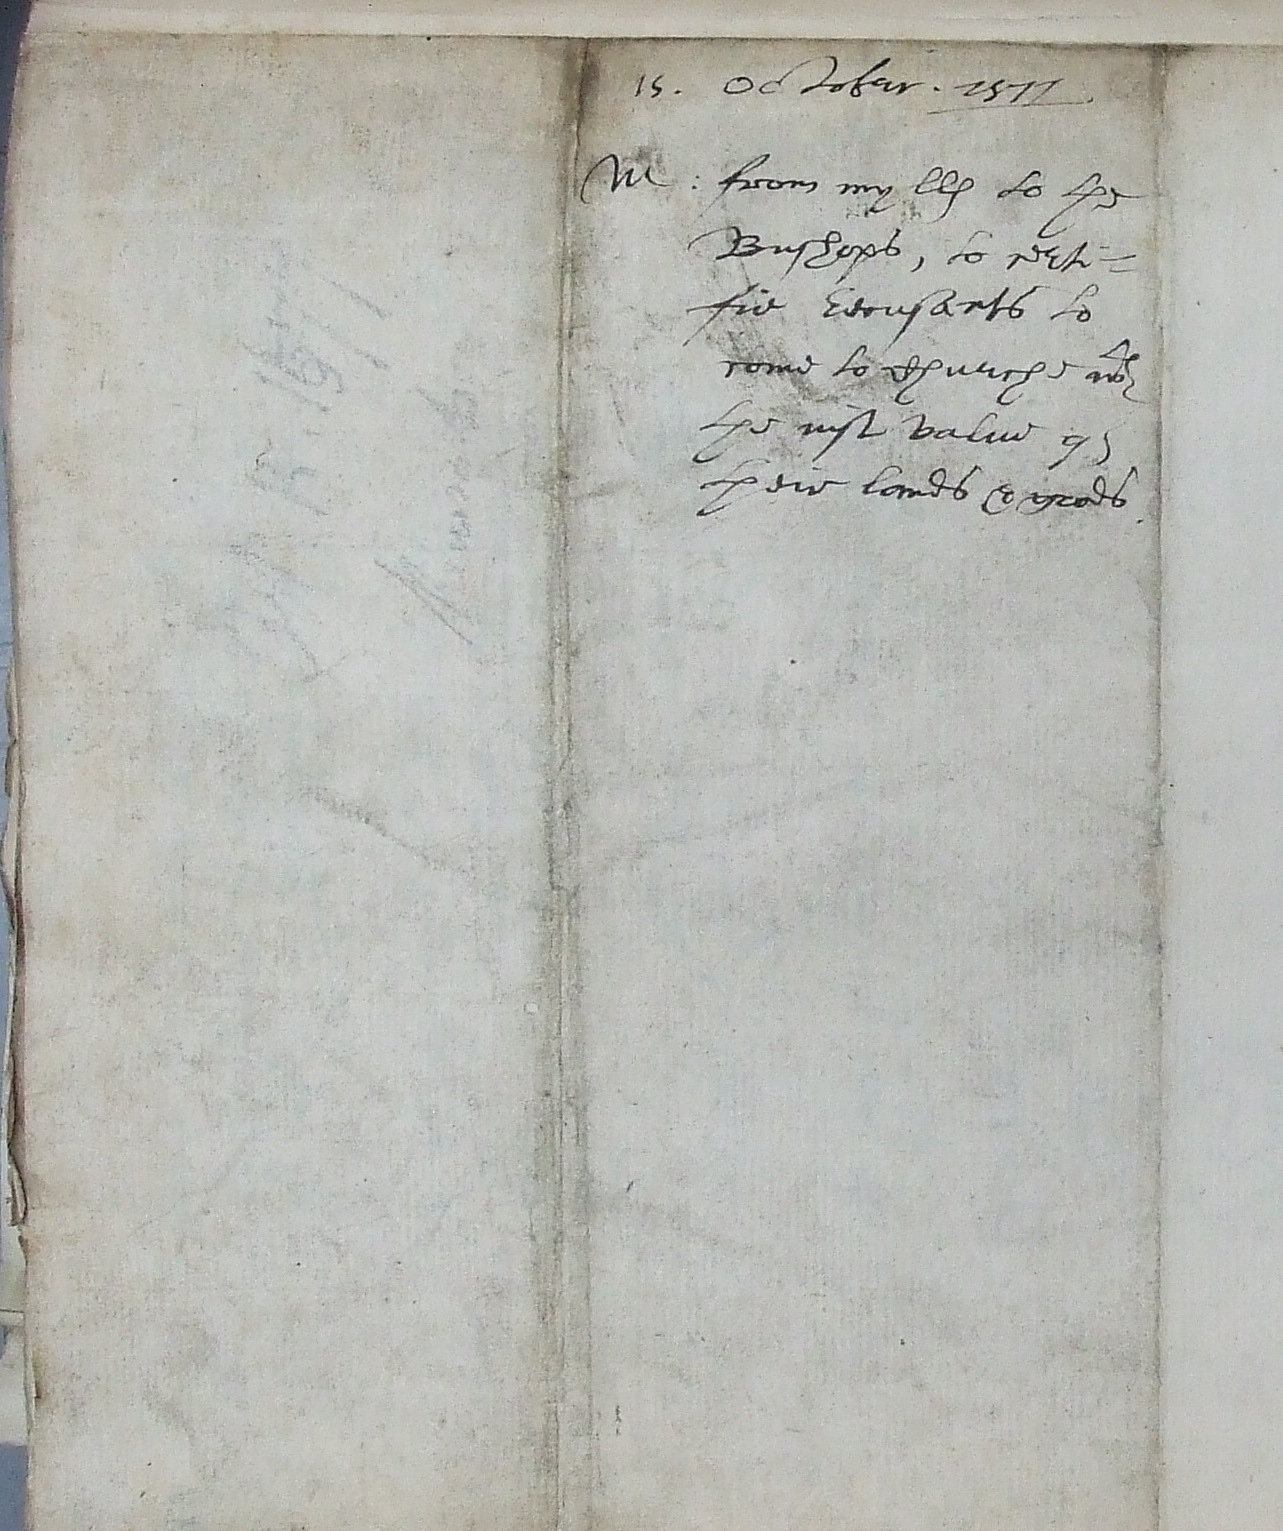 15. October. 1577
M: from my llp to the
Busshops, to certi=
fie Recusants to
come to Churche wth
the iust value of
their lands & goods.